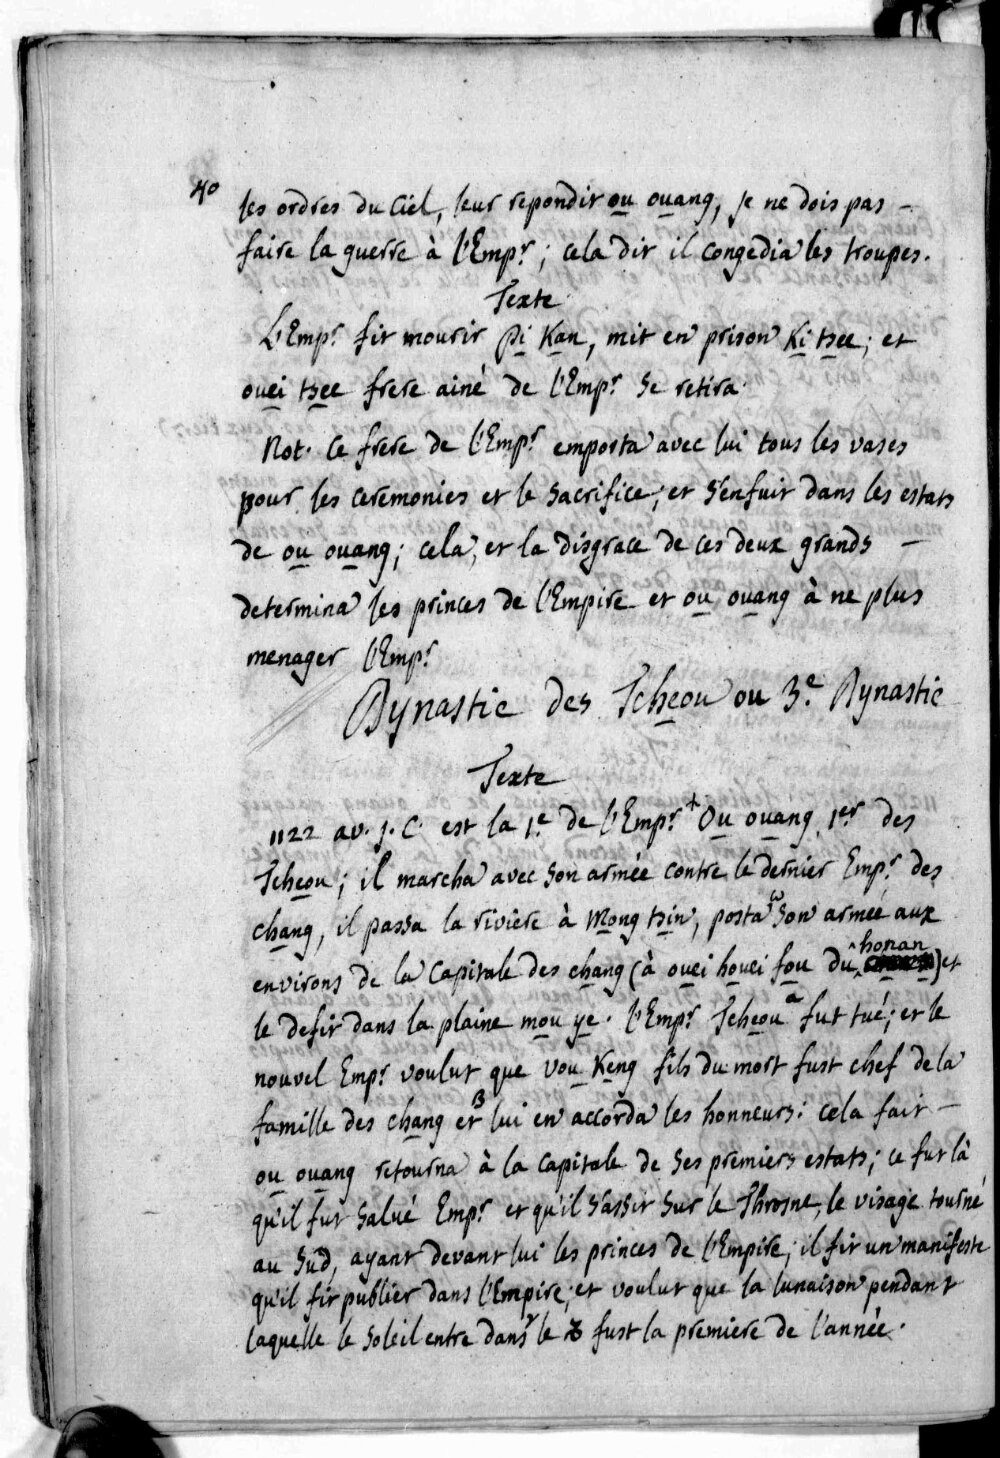 40
les ordres du Ciel, leur repondit ou ouang, je ne dois pas –
faire la guerre à l'Emp.r ; cela dit il congedia les troupes.
Texte
L'Emp.r fit mourir Pi Kan, mit en prison Ki tsee ; et
ouei tsee frere ainé de l'Emp.r se retira.
Not. Ce frere de l'Emp.r emporta avec lui tous les vases
pour les ceremonies et le sacrifice, et s'enfuit dans les estats
de ou ouang ; cela, et la disgrace de ces deux grands –
determina les princes de l'Empire et ou ouang à ne plus
menager l'Emp.r
Dynastie des Tcheou ou 3.e Dynastie
Texte
1122 av. J. C. est la 1.e de l'Emp.r + Ou ouang 1.er des
Tcheou ; il marcha avec son armée contre le dernier Emp.r des
chang, il passa la rivière à Mong tsin, posta son armée aux
environs de la Capitale des chang (à ouei houei fou du honan) et
le defit dans la plaine mou ye. l'Emp.r Tcheou a fut tué ; et le
nouvel Emp.r voulut que vou Keng fils du mort fust chef de la
famille des chang et B lui en accorda les honneurs : cela fait –
ou ouang retourna à la capitale de ses premiers estats ; ce fut là
qu'il fut salué Emp.r et qu'il s'assit sur le Throsne, le visage tourné
au Sud, ayant devant lui les princes de l'Empire ; il fit un manifeste
qu'il fit publier dans l'Empire, et voulut que la lunaison pendant
laquelle le Soleil entre dans le ♑ fust la premiere de l'année.